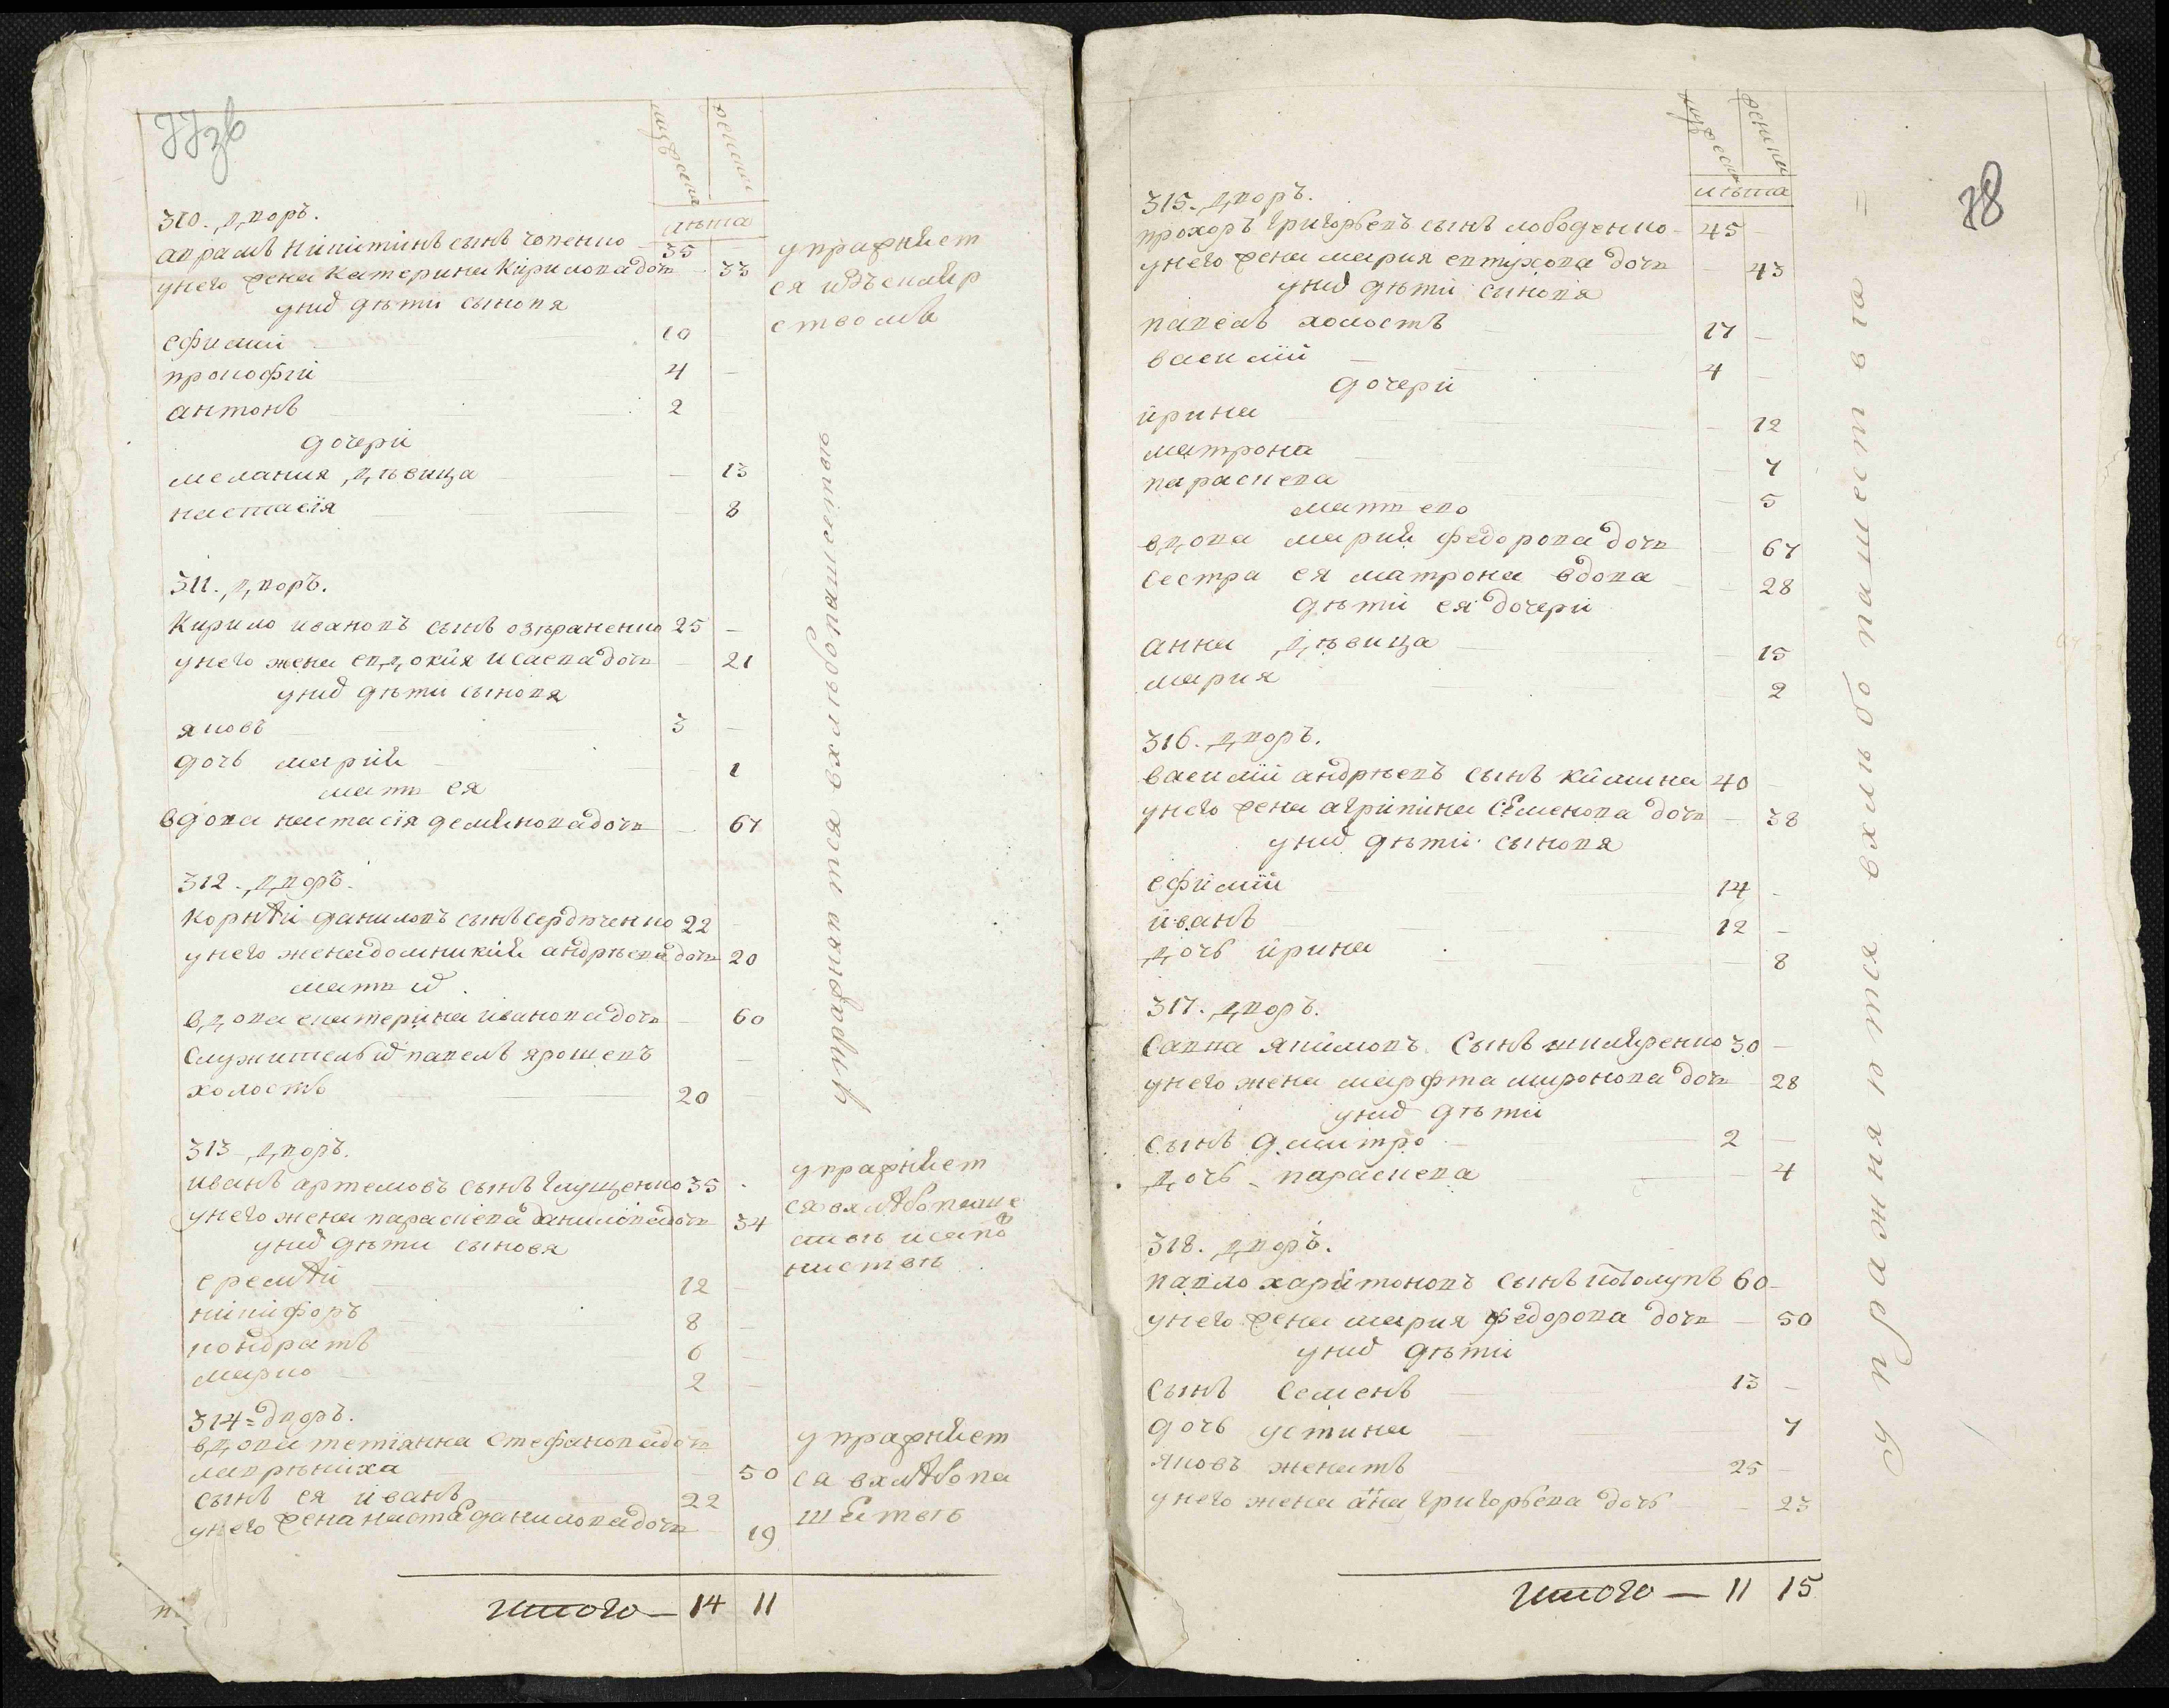 77зв
мужеска
женски
лѣта
310. дворъ.
аврамъ никитинъ сынъ човенко 35
унего жена катерина кирилова дочь 33
унихъ дѣти сыновя
ефимий 10
прокофій 4
антонъ 2
дочери
мелания дѣвица 13
настасія 8
311. дворъ.
Кирило ивановъ сынъ 25
унего жена евдокия исаева дочь 21
унихъ дѣти сыновя
яковъ 3
дочь мария 1
мать ея
вдова настасія демянова дочь 67
312. дворъ.
корнѣй даниловъ сынъ сердюченко 22
унего жена домникия андрѣева дочь 20
мать его
вдова екатерина иванова дочь 60
служитель его павелъ ярошевъ
холостъ 20
313 дворъ.
иванъ артемовъ сынъ глущенко 35
унего жена параскева данилова дочь 34
унихъ дѣти сыновя
еремѣй 12
никифоръ 8
кондратъ 6
марко 2
314 = дворъ.
вдова тетіянна стефанова дочь
лавреніха 50
сынъ ея иванъ 22
унего жена настя данилова дочь 19
итого — 14 11
упражняет
ся
ствомъ
упражняются вхлѣбопашествѣ
упражняет
ся вхлѣбопаше
ствѣ
упражняет
ся вхлѣбопа
шествѣ
78
мужеска
женски
лѣта
315. дворъ.
прохоръ григорьевъ сынъ лободенко 45
унего жена мария евтухова дочь 43
унихъ дѣти сыновя
павелъ холостъ 17
василій 4
дочери
ирина 12
матрона 7
параскева 5
мать его
вдова мария федорова дочь 67
сестра ея матрона вдова 28
дѣти ея дочери
анна дѣвица 15
мария 2
316. дворъ.
василій андрѣевъ сынъ 40
унего жена агрипина семенова дочь 38
унихъ дѣти сыновя
ефимій 14
иванъ 12
дочь ирина 8
317. дворъ.
савка якимовъ сынъ шкляренко 30
унего жена марфта миронова дочь 28
унихъ дѣти
сынъ дмитро 2
дочь параскева 4
318. дворъ.
павло харитоновъ сынъ 60
унего жена мария федорова дочь 50
унихъ дѣти
сынъ семенъ 13
дочь устина 7
яковъ женатъ 25
унего жена анна григорьева дочь 23
итого — 11 15
упражняются вхлѣбопашества =